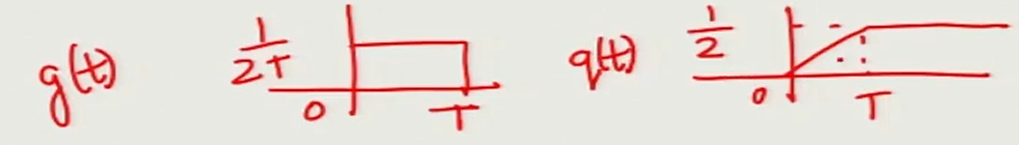 g(t) 1/2T 0 T q(t) 1/2 0 T